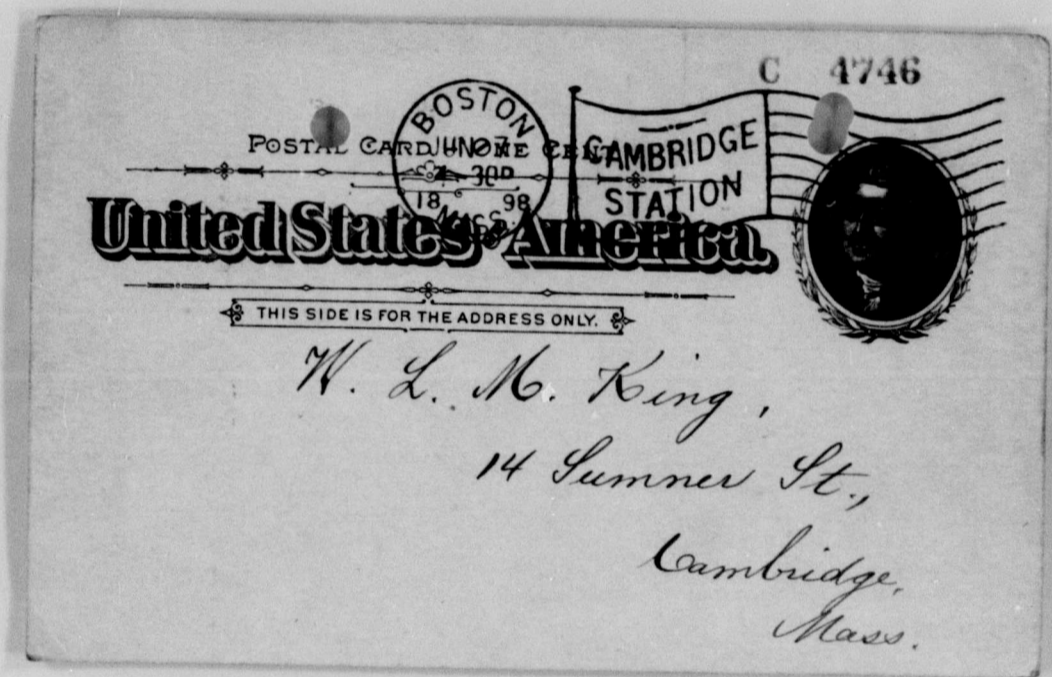 C 4746
POSTAL CARD ONE CENT
BOSTON
JUN 7
30P
18 98
MASS.
CAMBRIDGE
STATION
United States of America.
THIS SIDE IS FOR THE ADDRESS ONLY.
W. L. M. King,
14 Sumner St.,
Cambridge,
Mass.